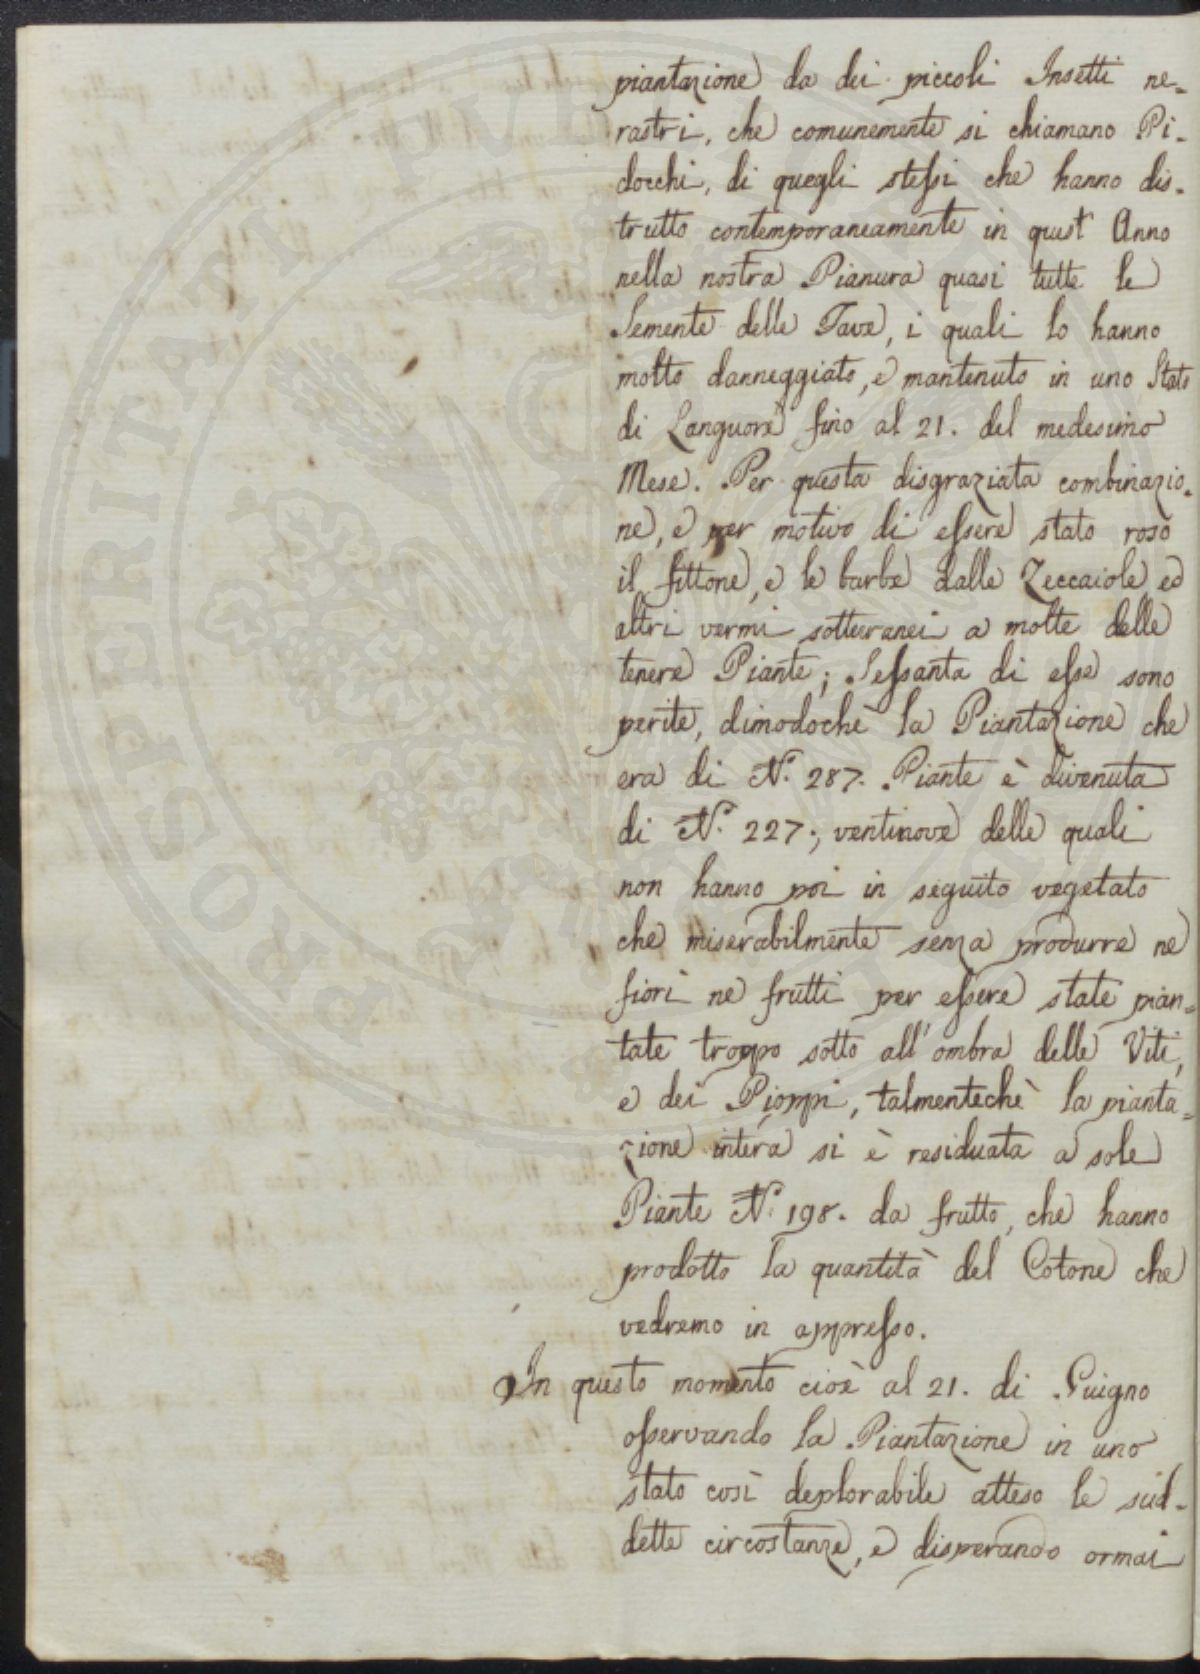 piantazione da dei piccoli Insetti ne=
rastri, che comunemente si chiamano Pi-
docchi, di quegli stessi che hanno dis-
trutto contemporaneamente in quest' Anno
nella nostra Pianura quasi tutte le
Semente delle Fave, i quali lo hanno
molto danneggiato, e mantenuto in uno Stato
di Languore fino al 21. del medesimo
Mese. Per questa disgraziata combinazio-
ne, e per motivo di essere stato roso
il fittone, e le barbe dalle Zeccaiole ed
altri vermi sotterranei a molte delle
tenere Piante; Sessanta di esse sono
perite, dimodochè la Piantazione che
era di N.° 287. Piante è divenuta
di N.° 227; ventinove delle quali
non hanno poi in seguito vegetato
che miserabilmente senza produrre ne
fiori ne frutti per essere state pian=
tate troppo sotto all'ombra delle Viti,
e dei Pioppi, talmentechè la pianta=
zione intera si è residuata a sole
Piante N.° 198. da frutto, che hanno
prodotto la quantità del Cotone che
vedremo in appresso.
In questo momento cioè al 21. di Giugno
osservando la Piantazione in uno
stato così deplorabile atteso le sud-
dette circostanze, e disperando ormai
PROSPERITATI PVBLICAE